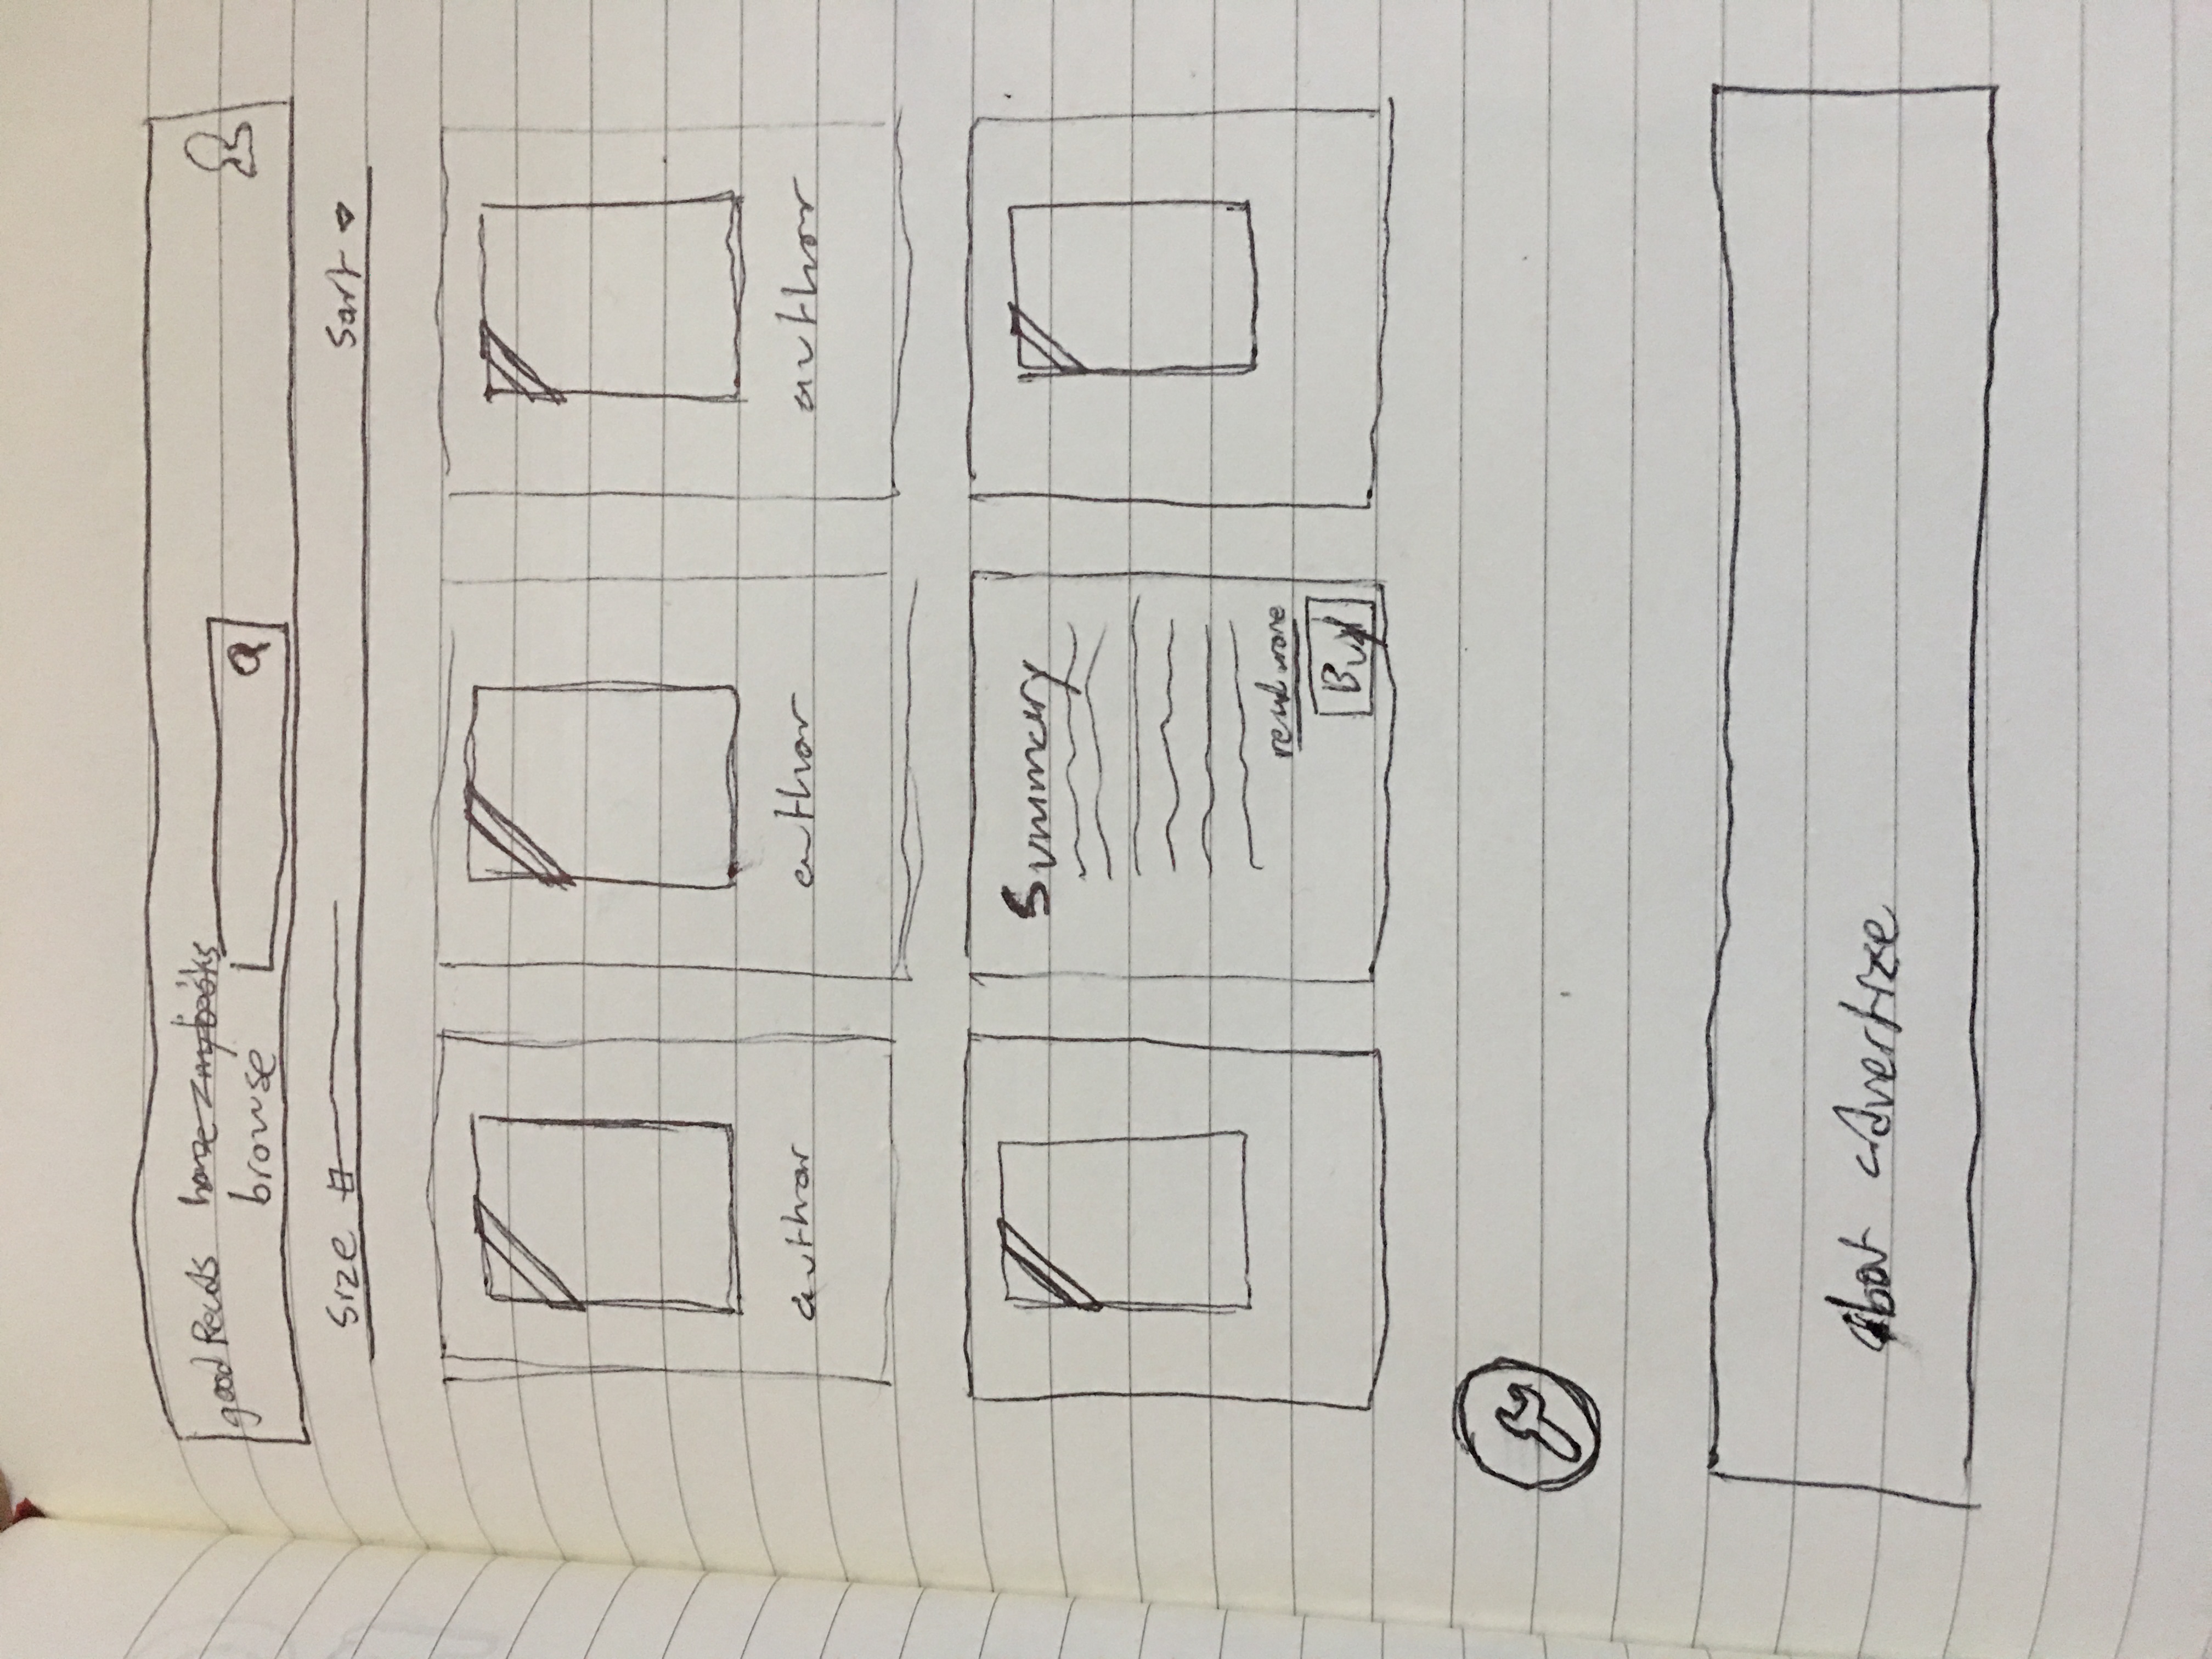 good Reads home my books
browse
Size Sort
author author author
Summary
read more
Buy
about advertize